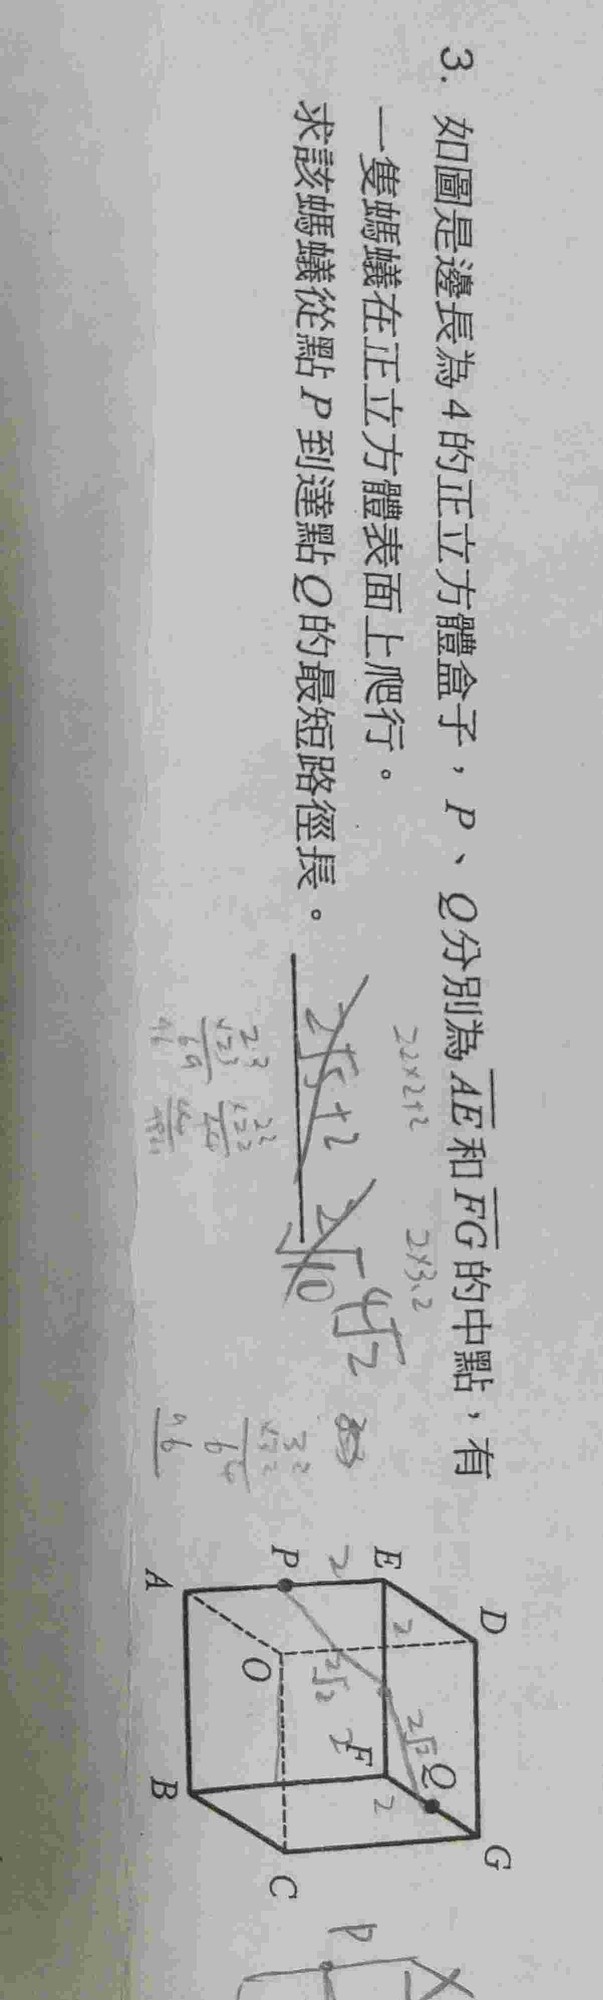 3. 如圖是邊長為4的正立方體盒子，P、Q分別為AE和FG的中點，有
一隻螞蟻在正立方體表面上爬行。
求該螞蟻從點P到達點Q的最短路徑長。
2√5+2
2√10
4√2
22×2+2
2×3.2
D
G
E
2
2√2
Q
F
2
P
2
2√2
2
O
C
A
B
P